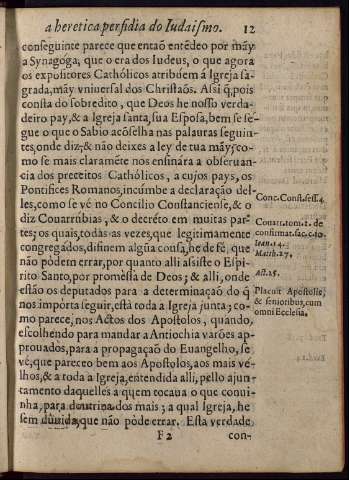 a heretica perfidia do Iudaismo. 12
conseguinte parece que entaõ entẽdeo por mãy
a Synagoga, que o era dos Iudeus, o que agora
os expositores Cathólicos atribuem á Igreja sa-
grada, mãy vniuersal dos Christaõs. Assi q̃, pois
consta do sobredito, que Deos he nosso verda-
deiro pay, & a Igreja santa, sua Esposa, bem se se-
gue o que o Sabio acõselha nas palauras seguin-
tes, onde diz; & não deixes a ley de tua mãy; co-
mo se mais claramẽte nos ensinára a obseruan-
cia dos preceitos Cathólicos, a cujos pays, os
Pontifices Romanos, incũmbe a declaração del-
les, como se vé no Concilio Constanciense, & o
diz Couarrúbias, & o decréto em muitas par-
tes; os quais, todas as vezes, que legitimamente
congregados, difinem algũa cousa, he de fé, que
não pódem errar, por quanto alli assiste o Espi-
rito Santo, por promèssa de Deos; & alli, onde
estão os deputados para a determinação do q̃
nos importa seguir, está toda a Igreja junta; co-
mo parece, nos Actos dos Apostolos, quando,
escolhendo para mandar a Antiochia varões ap-
prouados, para a propagação do Euangelho, se
vé, que pareceo bem aos Apostolos, aos mais ve-
lhos, & a toda a Igreja, entendida alli, pello ajun-
tamento daquelles a quem tocaua o que conui-
nha, para doutrina dos mais; a qual Igreja, he
sem dũuida, que não póde errar. Esta verdade
F 2 con-
Conc. Const. sess. 4.
Couar. tom. 1. de
confirmat. fac. c. 10.
Ioan. 14.
Matth. 27.
Act. 25.
Placuit Apostolis,
& senioribus, cum
omni Ecclesia.